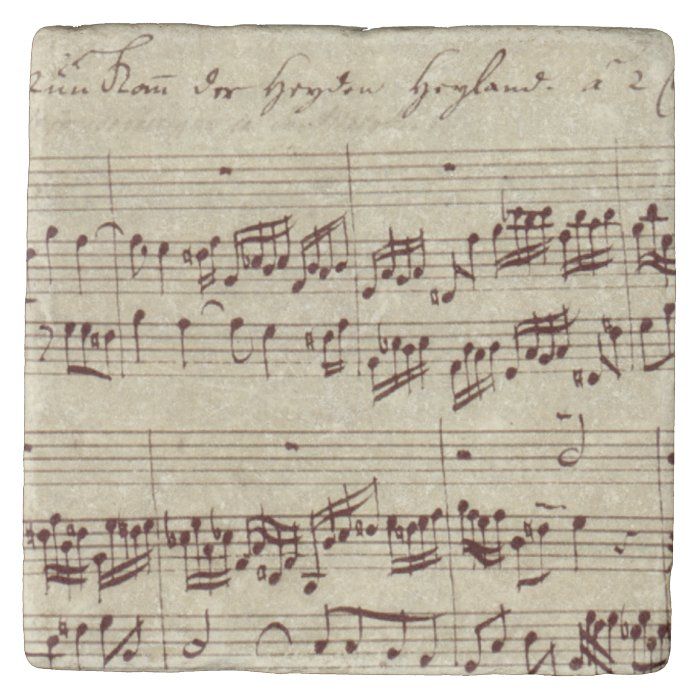 Nun Kom̅ der Heyden Heyland. à 2 (